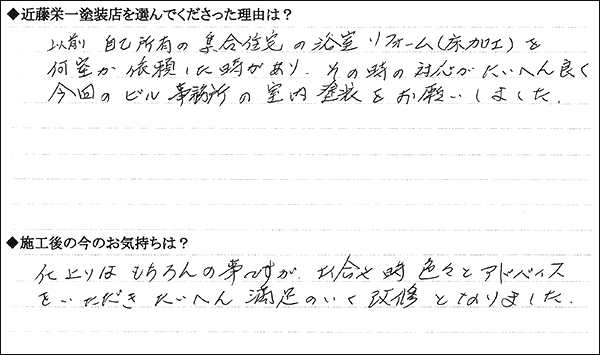 ◆近藤栄一塗装店を選んでくださった理由は？
以前 自己所有の集合住宅の浴室リフォーム(床加工)を
何室か依頼した時があり、その時の対応がたいへん良く
今回のビル事務所の室内塗装をお願いしました。
◆施工後の今のお気持ちは？
仕上りはもちろんの事ですが、打合せ時 色々とアドバイス
をいただき たいへん満足のいく改修となりました。